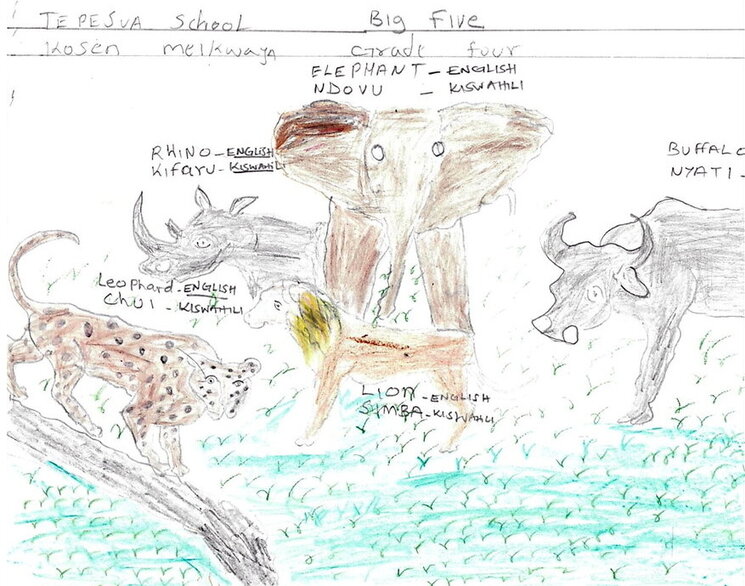 TEPESUA School Big Five
Kosen meikwaya Grade four
ELEPHANT - ENGLISH
NDOVU - KISWAHILI
RHINO - ENGLISH
Kifaru - KISWAHILI
BUFFALO
NYATI -
Leophard - ENGLISH
Chui - KISWAHILI
LION - ENGLISH
SIMBA - KISWAHILI